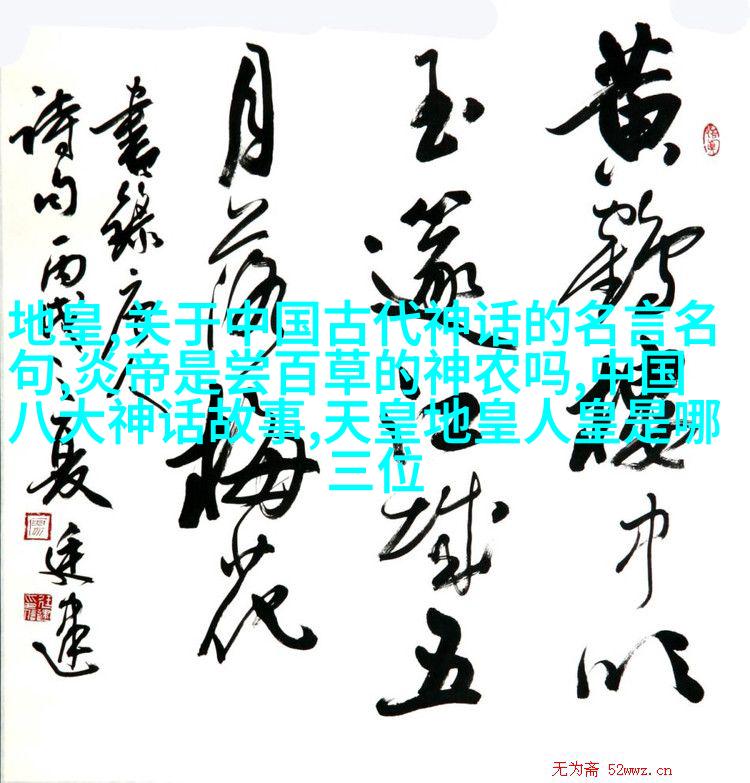 黄鶴樓中吹
玉篴江城五
月落梅花
書錄唐人
詩句丙戌之夏
地皇,关于中国古代神话的名言名
句,炎帝是尝百草的神农吗,中国
八大神话故事,天皇地皇人皇是哪
三位
无为斋 52wwz.cn